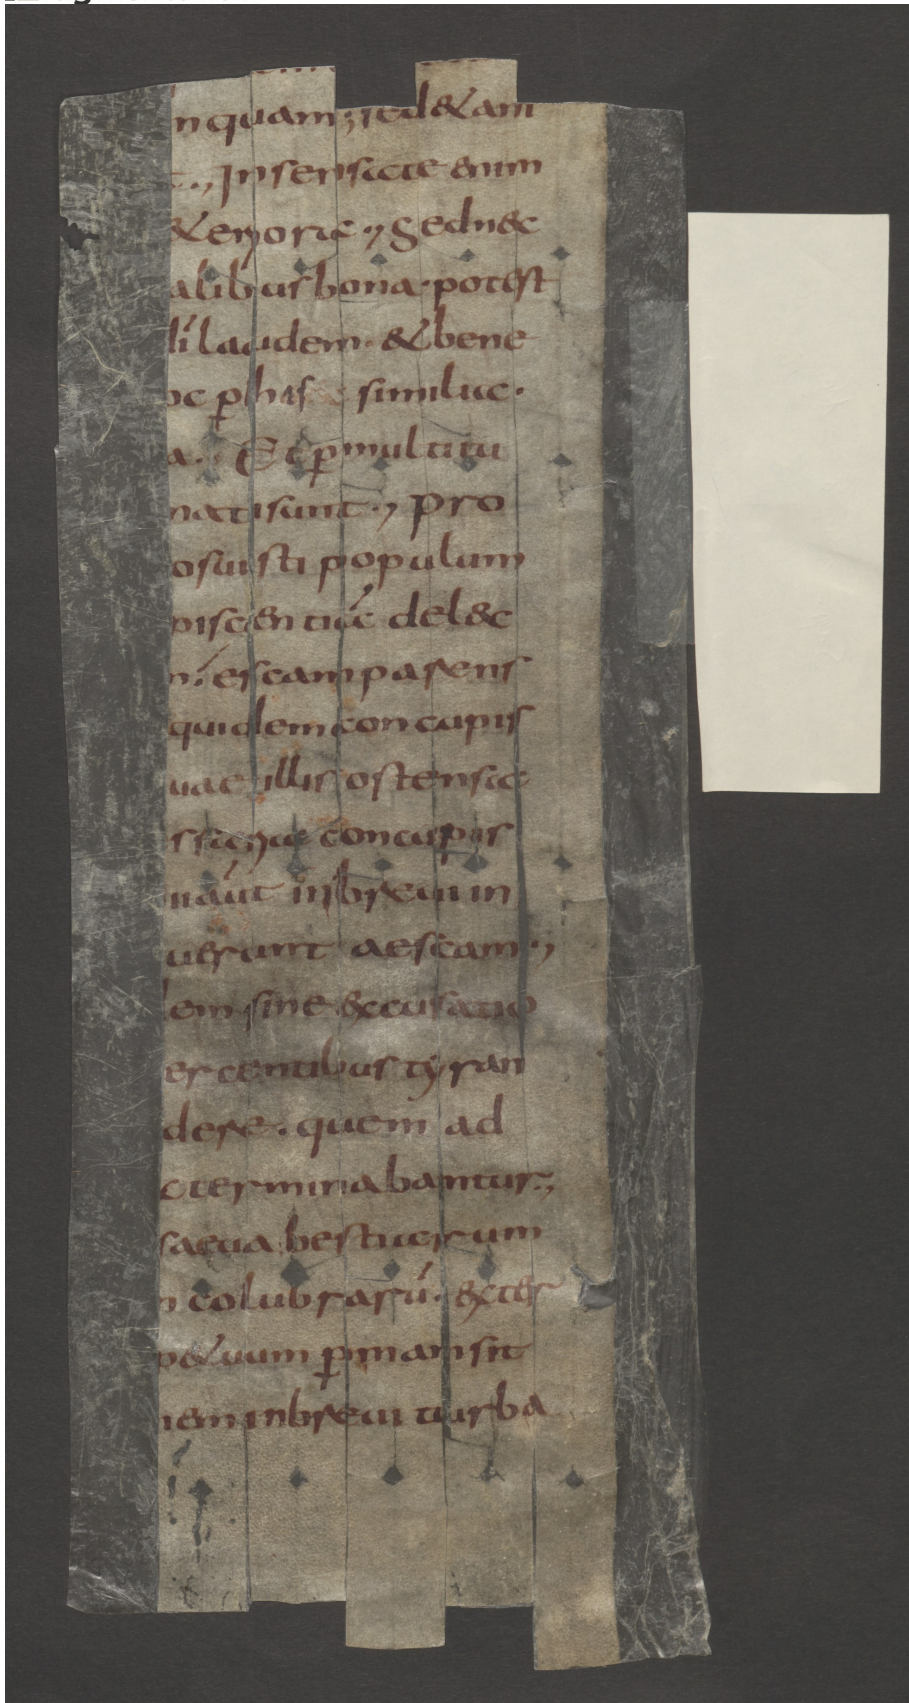 nquam; sed &am
Insensatae enim
& eṛorſ&. Sed n&c
alibus bona. potest
di laudem. & bene
oc p his similuc.
a. Et p multitu
nati sunt., pro
osuisti populum
piscentiae del&c
n; escam parens
quidem concupis
uae illis ostensae
concupis
náut inbreui in
uerunt aescam.,
em sine excusatio
ercentibus tyran
dere. quem ad
oterminabantur.,
saeua bestiarum
n colubrarú. exter
p&uum p mansit
nem inbreui turba